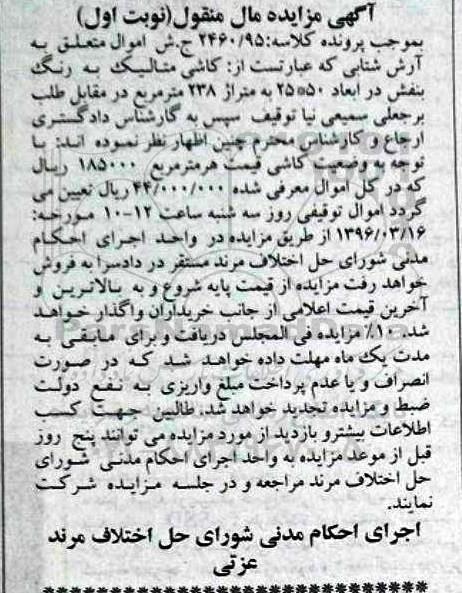 آگهی مزایده مال منقول(نوبت اول)
بموجب پرونده کلاسه:۲۴۶۰/۹۵ ج.ش اموال متعلق به
آرش شتابی که عبارتست از: کاشی متالیک به رنگ
بنفش در ابعاد ۵۰*۲۵ به متراژ ۲۳۸ مترمربع در مقابل طلب
برجعلی سمیعی نیا توقیف سپس به گارشناس دادگستری
ارجاع و کارشناس محترم چنین اظهار نظر نموده اند: با
توجه به وضعیت کاشی قیمت هرمترمربع ۱۸۵۰۰۰ ریال
که در کل اموال معرفی شده ۴۴/۰۰۰/۰۰۰ ریال تعیین می
گردد اموال توقیفی روز سه شنبه ساعت ۱۲-۱۰ مورخه:
۱۳۹۶/۰۳/۱۶ از طریق مزایده در واحد اجرای احکام
مدنی شورای حل اختلاف مرند مستقر در دادسرا به فروش
خواهد رفت مزایده از قیمت پایه شروع و به بالاترین و
آخرین قیمت اعلامی از جانب خریداران واگذار خواهد
شد. ۱۰٪ مزایده فی المجلس دریافت و برای مابقی به
مدت یک ماه مهلت داده خواهد شد که در صورت
انصراف و یا عدم پرداخت مبلغ واریزی به نفع دولت
ضبط و مزایده تجدید خواهد شد. طالبین جهت کسب
اطلاعات بیشترو بازدید از مورد مزایده می توانند پنج روز
قبل از موعد مزایده به واحد اجرای احکام مدنی شورای
حل اختلاف مرند مراجعه و در جلسه مزایده شرکت
نمایند.
اجرای احکام مدنی شورای حل اختلاف مرند
عزتی